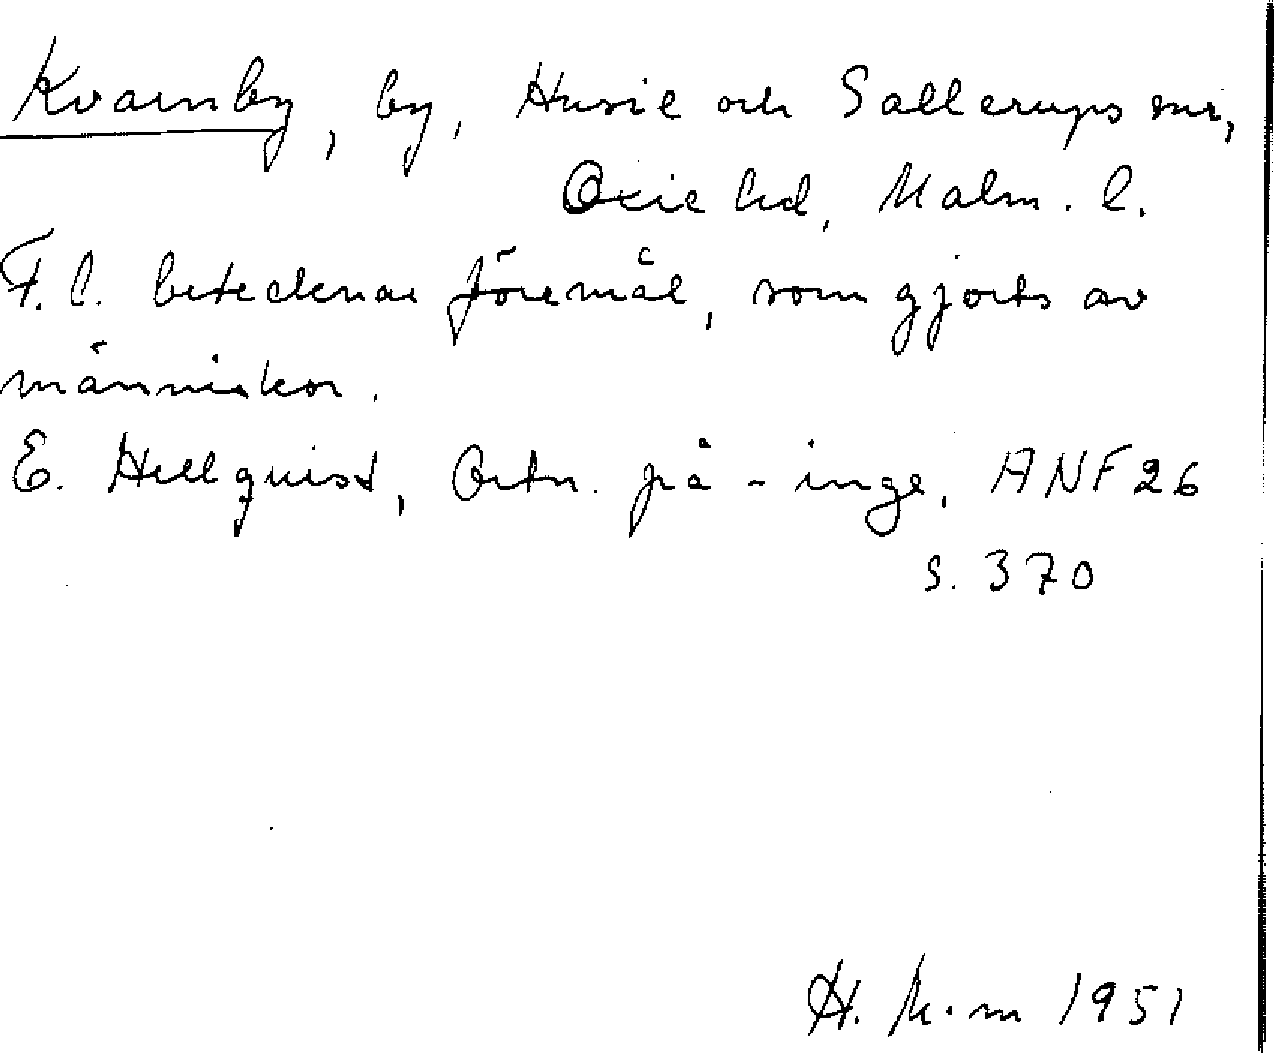 Kvarnby, by, Husie och Sallerups snr,
Oxie hd, Malm. l.
F. l. betecknar föremål, som gjorts av
människor.
E. Hellquist, Ortn. på -inge, ANF 26
s. 370
H. 1951